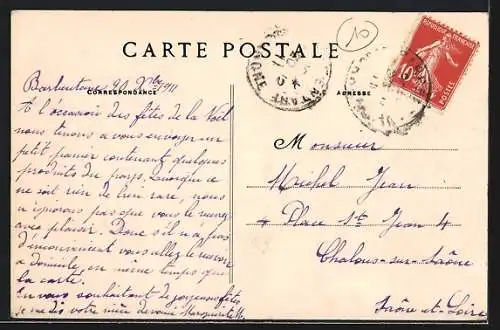 CARTE POSTALE
CORRESPONDANCE
ADRESSE
REPUBLIQUE FRANÇAISE
POSTES
10
Barbentane 20 Xbre 1911
A l'occasion des fêtes de la Noël
nous tenons a vous envoyer un
petit panier contenant quelques
produits du pays, Quoique ce
ne soit rien de bien rare, nous
n'ignorons pas que vous le
avec plaisir. Donc s'il n'a pas
d'inconvénient vous allez le recevoir
a domicile, en même temps que
la carte.
En vous souhaitant de joyeuses fêtes,
je me dis votre Marguerite
Monsieur
Michel Jean
4 Place St Jean 4
Chalons-sur-Saône
Saône-et-Loire